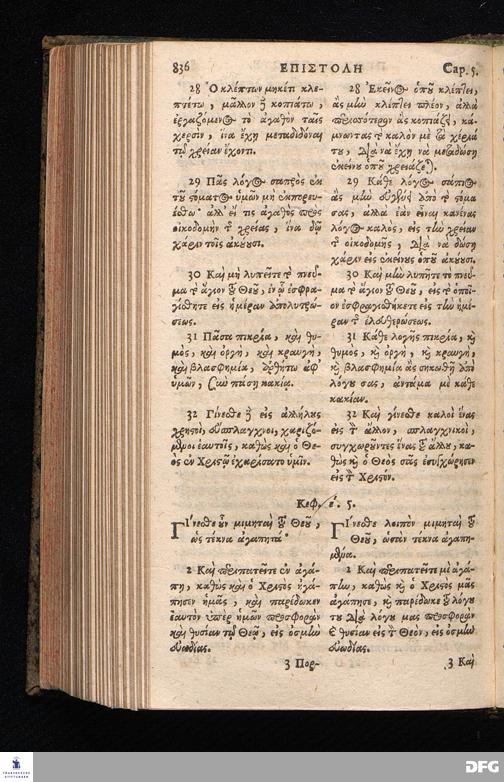 836 ΕΠΙΣΤΟΛΗ Cap. 5.
28 Ὁ κλέπτων μηκέτι κλε-
πτέτω, μᾶλλον δὲ κοπιάτω,
ἐργαζόμενος τὸ ἀγαθὸν ταῖς
χερσὶν, ἵνα ἔχῃ μεταδιδόναι
τῷ χρείαν ἔχοντι.
29 Πᾶς λόγος σαπρὸς ἐκ
τοῦ στόματος ὑμῶν μὴ ἐκπορευ-
έσθω· ἀλλ' εἴ τις ἀγαθὸς πρὸς
οἰκοδομὴν τῆς χρείας, ἵνα δῷ
χάριν τοῖς ἀκούουσι.
30 Καὶ μὴ λυπεῖτε τὸ πνεῦ-
μα τὸ ἅγιον τοῦ Θεοῦ, ἐν ᾧ ἐσφρα-
γίσθητε εἰς ἡμέραν ἀπολυτρώ-
σεως.
31 Πᾶσα πικρία, καὶ θυ-
μὸς, καὶ ὀργὴ, καὶ κραυγὴ,
καὶ βλασφημία, ἀρθήτω ἀφ'
ὑμῶν, σὺν πάσῃ κακίᾳ.
32 Γίνεσθε δὲ εἰς ἀλλήλους
χρηστοὶ, εὔσπλαγχνοι, χαριζό-
μενοι ἑαυτοῖς, καθὼς καὶ ὁ Θε-
ὸς ἐν Χριστῷ ἐχαρίσατο ὑμῖν.
28 Ἐκεῖνος ὁποῦ κλέπτει,
ἂς μὴν κλέπτει πλέον, ἀλλὰ
περισσότερον ἂς κοπιάζῃ, κά-
μνωντας τὸ καλὸν μὲ τὰ χέρια
του, διὰ νὰ ἔχῃ νὰ μεταδώσῃ
ἐκείνου ὁποῦ χρειάζεται.
29 Κάθε λόγος σάπιος
ἂς μὴν εὐγῇ ἀπὸ τὸ στόμα
σας, ἀλλὰ ἐὰν εἶναι κανένας
λόγος καλὸς, εἰς τὴν χρείαν
τῆς οἰκοδομῆς, διὰ νὰ δώσῃ
χάριν εἰς ἐκείνους ὁποῦ ἀκούσι.
30 Καὶ μὴν λυπῆτε τὸ πνεῦ-
μα τὸ ἅγιον τοῦ Θεοῦ, εἰς τὸ ὁποῖ-
ον ἐσφραγισθήκετε εἰς τὴν ἡμέ-
ραν τῆς ἐλευθερώσεως.
31 Κάθε λογῆς πικρία, καὶ
θυμὸς, καὶ ὀργὴ, καὶ κραυγὴ,
καὶ βλασφημία ἂς σηκωθῇ ἀπὸ
λόγου σας, ἀντάμα μὲ κάθε
κακίαν.
32 Καὶ γίνεσθε καλοὶ ἕνας
εἰς τὸν ἄλλον, σπλαγχνικοὶ,
συγχωρῶντες ἕνας τοῦ ἄλλου, κα-
θὼς καὶ ὁ Θεὸς σᾶς ἐσυγχώρησεν
εἰς τὸν Χριστόν.
Κεφ. ε. 5.
Γίνεσθε οὖν μιμηταὶ τοῦ Θεοῦ,
ὡς τέκνα ἀγαπητά·
2 Καὶ περιπατεῖτε ἐν ἀγά-
πῃ, καθὼς καὶ ὁ Χριστὸς ἠγά-
πησεν ἡμᾶς, καὶ παρέδωκεν
ἑαυτὸν ὑπὲρ ἡμῶν προσφορὰν
καὶ θυσίαν τῷ Θεῷ, εἰς ὀσμὴν
εὐωδίας.
3 Πορ-
Γίνεσθε λοιπὸν μιμηταὶ τοῦ
Θεοῦ, ὡσὰν τέκνα ἀγαπη-
μένα.
2 Καὶ περιπατεῖτε μὲ ἀγά-
πην, καθὼς καὶ ὁ Χριστὸς μᾶς
ἀγάπησε, καὶ παρέδωκε τοῦ λόγου
του διὰ λόγου μας προσφορὰν
καὶ θυσίαν εἰς τὸν Θεὸν, εἰς ὀσμὴν
εὐωδίας.
3 Καὶ
FRANCKESCHE
STIFTUNGEN
DFG